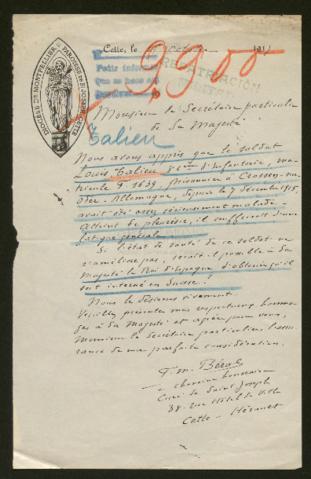 DIOCÈSE DE MONTPELLIER
PAROISSE DE ST JOSEPH CETTE
Cette, le
191
9900
REPATRIACIÓN
Pedir informes
Monsieur le Secrétaire particulier
de Sa Majesté
Talieu
Nous avons appris que le soldat
Louis Talieu d'Infanterie, ma-
tricule 1639, prisonnier à Crossen-sur-
Oder - Allemagne, depuis le 7 décembre 1915,
avait été assez sérieusement malade.
Atteint de pleurésie, il souffrirait d'une
fatigue générale.
Si l'état de santé de ce soldat ne
s'améliore pas, serait-il possible à Sa
Majesté le Roi d'Espagne d'obtenir qu'il
soit interné en Suisse.
Nous le désirons vivement.
Veuillez présenter mes respectueux homma-
ges à Sa Majesté et agréer pour vous,
Monsieur le Secrétaire particulier, l'assu-
rance de ma parfaite considération.
chanoine honoraire
Curé de Saint Joseph
38 rue Hôtel de Ville
Cette - Hérault